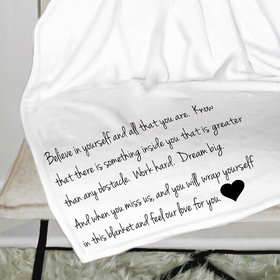 Believe in yourself and all that you are. Know
that there is something inside you that is greater
than any obstacle. Work hard. Dream big.
And when you miss us, and you will, wrap yourself
in this blanket and feel our love for you.